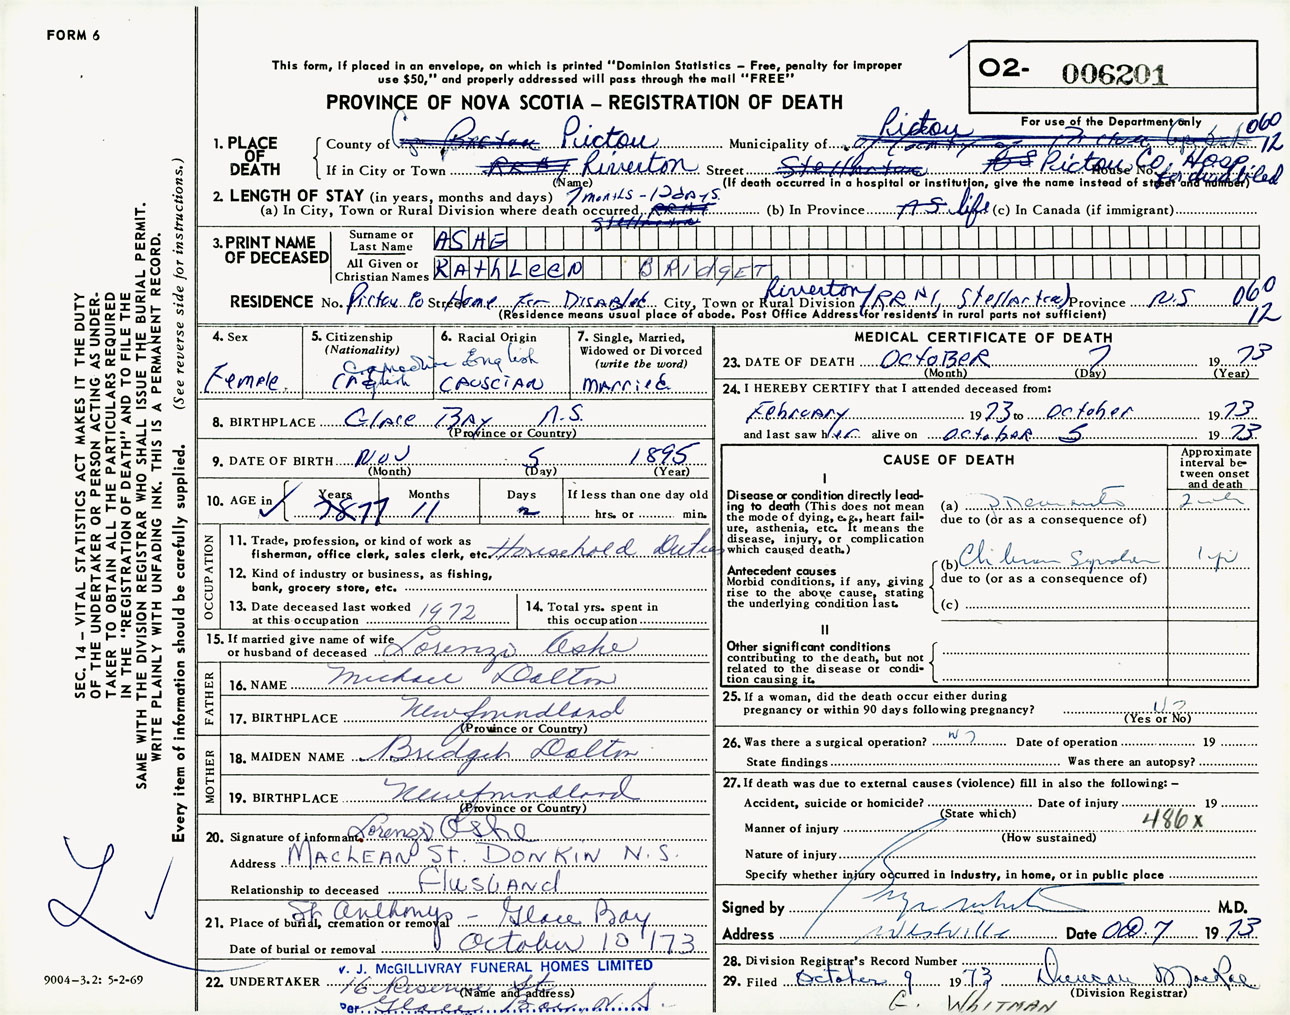 FORM 6
This form, if placed in an envelope, on which is printed "Dominion Statistics – Free, penalty for improper
use $50," and properly addressed will pass through the mail "FREE"
PROVINCE OF NOVA SCOTIA – REGISTRATION OF DEATH
O2- 006201
For use of the Department only
060
12
1. PLACE OF DEATH
County of Pictou Municipality of Pictou
If in City or Town Riverton Street Pictou Co. Hosp for disabled House No.
(Name) (If death occurred in a hospital or institution, give the name instead of street and number)
2. LENGTH OF STAY (in years, months and days) 7 months - 12 days
(a) In City, Town or Rural Division where death occurred (b) In Province life (c) In Canada (if immigrant)
3. PRINT NAME OF DECEASED
Surname or Last Name ASHE
All Given or Christian Names KATHLEEN BRIDGET
RESIDENCE No. Pictou Co Street Home For Disabled City, Town or Rural Division Riverton (RR N1, Stellarton) Province N.S 060 12
(Residence means usual place of abode. Post Office Address for residents in rural parts not sufficient)
4. Sex
Female
5. Citizenship (Nationality)
Canadian
6. Racial Origin
English
CAUSCIAN
7. Single, Married, Widowed or Divorced (write the word)
MARRIED
8. BIRTHPLACE Glace Bay N.S.
(Province or Country)
9. DATE OF BIRTH Nov 5 1895
(Month) (Day) (Year)
10. AGE in Years 77 Months 11 Days 2 If less than one day old
hrs. or min.
11. Trade, profession, or kind of work as fisherman, office clerk, sales clerk, etc. Household Duties
12. Kind of industry or business, as fishing, bank, grocery store, etc.
13. Date deceased last worked at this occupation 1972
14. Total yrs. spent in this occupation
OCCUPATION
15. If married give name of wife or husband of deceased Lorenzo Ashe
FATHER
16. NAME Michael Dalton
17. BIRTHPLACE Newfoundland
(Province or Country)
MOTHER
18. MAIDEN NAME Bridget Dalton
19. BIRTHPLACE Newfoundland
(Province or Country)
20. Signature of informant Lorenzo Ashe
Address MacLean St. Donkin N.S.
Relationship to deceased Husband
21. Place of burial, cremation or removal St Anthonys - Glace Bay
Date of burial or removal October 10 '73
v. J. McGILLIVRAY FUNERAL HOMES LIMITED
22. UNDERTAKER 16 Reserve St.
(Name and address)
Per Glace Bay N.S.
MEDICAL CERTIFICATE OF DEATH
23. DATE OF DEATH October 7 1973
(Month) (Day) (Year)
24. I HEREBY CERTIFY that I attended deceased from:
February 1973 to October 1973
and last saw her alive on October 5 1973
CAUSE OF DEATH
Approximate interval between onset and death
I
Disease or condition directly leading to death (This does not mean the mode of dying, e.g., heart failure, asthenia, etc. It means the disease, injury, or complication which caused death.)
(a)
due to (or as a consequence of)
Antecedent causes
Morbid conditions, if any, giving rise to the above cause, stating the underlying condition last.
(b)
due to (or as a consequence of)
(c)
II
Other significant conditions contributing to the death, but not related to the disease or condition causing it.
25. If a woman, did the death occur either during pregnancy or within 90 days following pregnancy? No
(Yes or No)
26. Was there a surgical operation? No Date of operation 19
State findings Was there an autopsy?
27. If death was due to external causes (violence) fill in also the following: –
Accident, suicide or homicide? Date of injury 19
(State which)
Manner of injury 486x
(How sustained)
Nature of injury
Specify whether injury occurred in industry, in home, or in public place
Signed by M.D.
Address Westville Date Oct. 7 1973
28. Division Registrar's Record Number
29. Filed October 9 1973 Duncan
(Division Registrar)
E. WHITMAN
SEC. 14 – VITAL STATISTICS ACT MAKES IT THE DUTY
OF THE UNDERTAKER OR PERSON ACTING AS UNDER-
TAKER TO OBTAIN ALL THE PARTICULARS REQUIRED
IN THE "REGISTRATION OF DEATH" AND TO FILE THE
SAME WITH THE DIVISION REGISTRAR WHO SHALL ISSUE THE BURIAL PERMIT.
WRITE PLAINLY WITH UNFADING INK. THIS IS A PERMANENT RECORD.
Every item of information should be carefully supplied. (See reverse side for instructions.)
9004–3.2: 5-2-69